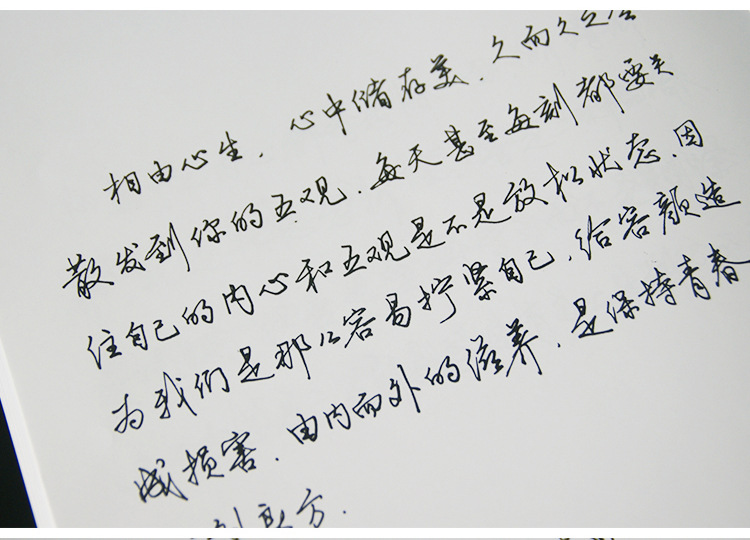 相由心生，心中储存美，久而久之会
散发到你的五观，每天甚至每刻都要关
住自己的内心和五观是不是放松状态，因
为我们是那么容易拧紧自己，给容颜造
成损害，由内而外的滋养，是保持青春
方．